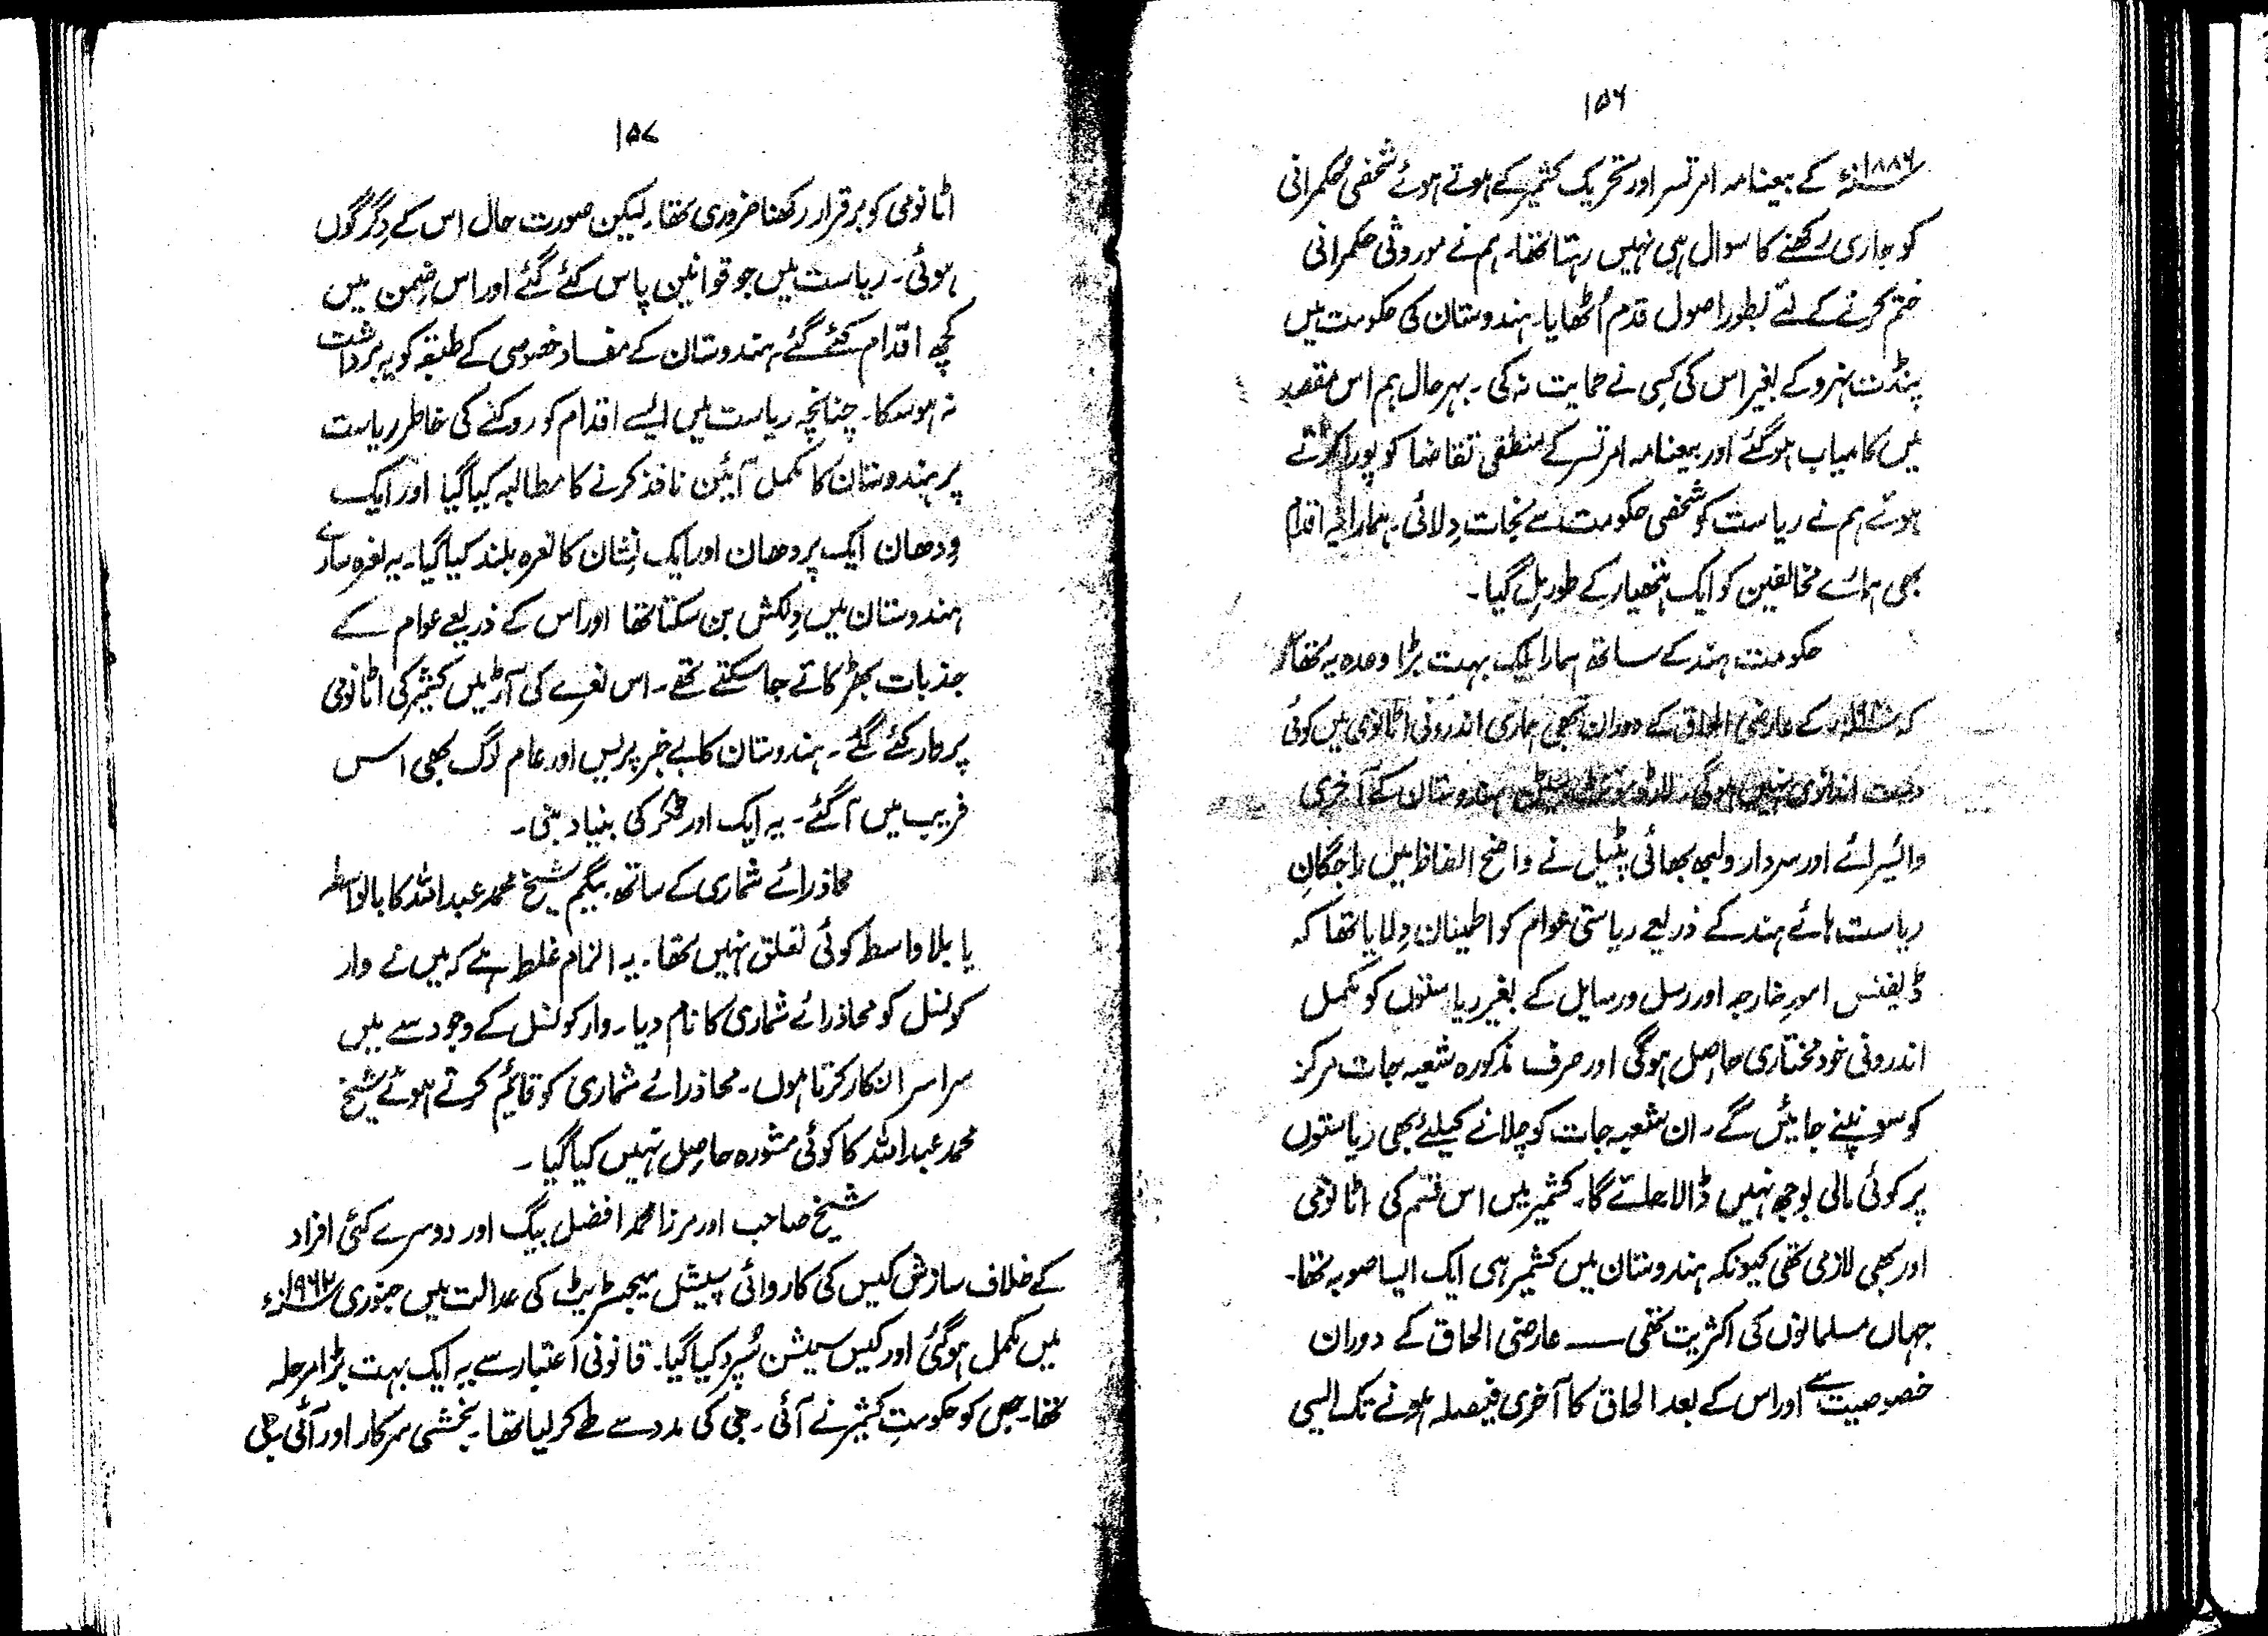 ۱۵۶
۱۸۸۶ء کے بیعنامہ امرتسر اور تحریک کشمیر کے ہوتے ہوئے شخصی حکمرانی
کو جاری رکھنے کا سوال ہی نہیں رہتا تھا۔ ہم نے موروثی حکمرانی
ختم کرنے کے لئے بطور اصول قدم اُٹھایا۔ ہندوستان کی حکومت میں
پنڈت نہرو کے بغیر اس کی کسی نے حمایت نہ کی۔ بہر حال ہم اس مقصد
میں کامیاب ہو گئے اور بیعنامہ امرتسر کے منطقی تقاضا کو پورا کرتے
ہوئے ہم نے ریاست کو شخصی حکومت سے نجات دلائی۔ ہمارا یہ اقدام
بھی ہمارے مخالفین کو ایک ہتھیار کے طور مل گیا۔
حکومت ہند کے ساتھ ہمارا ایک بہت بڑا وعدہ یہ تھا
کہ کے عارضی الحاق کے دوران بھی ہماری اندرونی اٹانومی میں کوئی
دست اندازی نہیں ہوگی۔ لارڈ مونٹ بیٹن ہندوستان کے آخری
وائیسرائے اور سردار ولبھ بھائی پٹیل نے واضح الفاظ میں راجگانِ
ریاست ہائے ہند کے ذریعے ریاستی عوام کو اطمینان دلایا تھا کہ
ڈیفنس امورِ خارجہ اور رسل و رسایل کے بغیر ریاستوں کو مکمل
اندرونی خود مختاری حاصل ہوگی اور صرف مذکورہ شعبہ جات مرکز
کو سونپنے جائیں گے۔ ان شعبہ جات کو چلانے کیلئے بھی ریاستوں
پر کوئی مالی بوجھ نہیں ڈالا جائے گا۔ کشمیر میں اس قسم کی اٹانومی
اور بھی لازمی تھی کیونکہ ہندوستان میں کشمیر ہی ایک ایسا صوبہ تھا۔
جہاں مسلمانوں کی اکثریت تھی ــــ عارضی الحاق کے دوران
خصوصیت سے اور اس کے بعد الحاق کا آخری فیصلہ ہونے تک ایسی
۱۵۷
اٹانومی کو برقرار رکھنا ضروری تھا۔ لیکن صورت حال اس کے دِگرگوں
ہوئی۔ ریاست میں جو قوانین پاس کئے گئے اور اس ضمن میں
کچھ اقدام کئے گئے۔ ہندوستان کے مفاد خصوصی کے طبقہ کو یہ برداشت
نہ ہو سکا۔ چنانچہ ریاست میں ایسے اقدام کو روکنے کی خاطر ریاست
پر ہندوستان کا مکمل آئین نافذ کرنے کا مطالبہ کیا گیا اور ایک
ودھان ایک پردھان اور ایک نشان کا نعرہ بلند کیا گیا۔ یہ نعرہ سارے
ہندوستان میں دلکش بن سکتا تھا اور اس کے ذریعے عوام کے
جذبات بھڑکائے جا سکتے تھے۔ اس نعرے کی آڑ میں کشمیر کی اٹانومی
پر وار کئے گئے۔ ہندوستان کا بے خبر پریس اور عام لوگ بھی اس
فریب میں آ گئے۔ یہ ایک اور ٹکر کی بنیاد بنی۔
محاذ رائے شماری کے ساتھ بیگم شیخ محمد عبداللہ کا بالواسطہ
یا بلا واسطہ کوئی تعلق نہیں تھا۔ یہ الزام غلط ہے کہ میں نے وار
کونسل کو محاذ رائے شماری کا نام دیا۔ وار کونسل کے وجود سے میں
سراسر انکار کرتا ہوں۔ محاذ رائے شماری کو قائیم کرتے ہوئے شیخ
محمد عبداللہ کا کوئی مشورہ حاصل نہیں کیا گیا۔
شیخ صاحب اور مرزا محمد افضل بیگ اور دوسرے کئی افراد
کے خلاف سازش کیس کی کاروائی سپیشل میجسٹریٹ کی عدالت میں جنوری
میں مکمل ہو گئی اور کیس سیشن سُپرد کیا گیا۔ قانونی اعتبار سے یہ ایک بہت بڑا مرحلہ
تھا۔ جس کو حکومتِ کشمیر نے آئی۔ جی کی مدد سے طے کر لیا تھا۔ بخشی سرکار اور آئی۔ جی